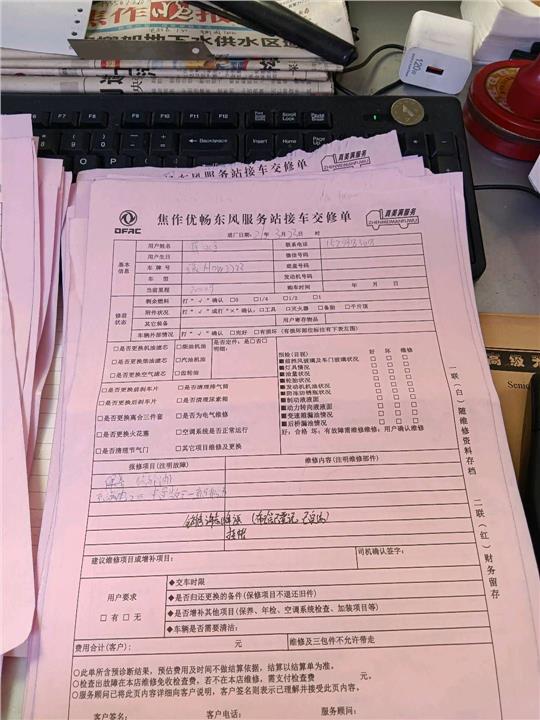 焦作晚报
供水区
120
Home
Page Up
Backspace
Insert
Scroll Lock
F6
F7
F8
F9
F10
F11
F12
焦作优畅东风服务站接车交修单
真美满服务
ZHENMEIMANFUWU
DFAC
焦作优畅东风服务站接车交修单
真美满服务
ZHENMEIMANFUWU
进厂日期: 21年3月23日 时
基本信息
用户姓名
联系电话
用户生日
微信号码
车牌号
底盘号码
车型
发动机号码
当前里程
购车时间 年 月 日
修前状态
剩余燃料 打“√”确认 □0 □1/4 □1/2 □1
附件状况 打“√”或打“×”确认,□工具 □灭火器 □备胎 □千斤顶
其它装备
用户寄存物品
车辆外部情况 打“√”确认 □完好 □有损坏 (有损坏部位标位有下表左图)
□是否更换机油滤芯 □柴油机油
□是否更换柴油滤芯 □汽油机油
□是否更换空气滤芯 □齿轮油
是否定件: 是□否□
明细:
□是否更换前刹车片 □是否清理排气筒
□是否更换后刹车片 □是否清理尿素箱
□是否更换离合三件套 □是否为电气维修
□是否更换火花塞 □空调系统是否正常运行
□是否清理节气门 □其它项目维修及更换
预检(目视) 好 坏 维修
■前挡风玻璃及车门玻璃状况 □ □ □
■灯具情况 □ □ □
■油量状况 □ □ □
■轮胎状况 □ □ □
■发动机机油状况 □ □ □
■防冻防锈瓶状况 □ □ □
■制动液液面 □ □ □
■动力转向液液面 □ □ □
■变速箱漏油情况 □ □ □
■后桥漏油情况 □ □ □
好:合格 坏:有故障需维修维修:用户确认维修
报修项目(注明故障)
维修内容(注明维修部件)
保养
挂帐
建议维修项目或增补项目:
司机确认签字:
用户要求
□有 □无
◆交车时限
◆是否归还更换的备件(保修项目不退还旧件)
◆是否增补其他项目(保养、年检、空调系统检查、加装项目等)
◆车辆是否需要清洁:
费用合计(客户): 元
维修及三包件不允许带走
○此单所含预诊断结果,预估费用及时间不做结算依据,结算以结算单为准。
○检查出故障在本店维修免收检查费,若不在本店维修,需支付检查费 元。
○服务顾问已将此页内容详细向客户说明,客户签名则表示已理解并接受此页内容。
客户签名: 客户电话: 服务顾问:
一联(白)随维修资料存档
二联(红)财务留存